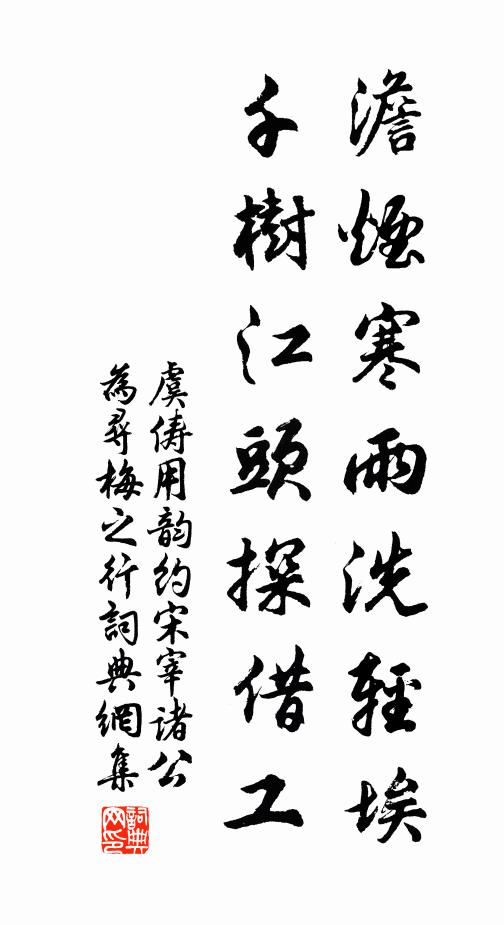 澹煙寒雨洗輕埃
千樹江頭探借工
虞儔用韵約宋宰諸公
為尋梅之行詞典網集
詞典网印